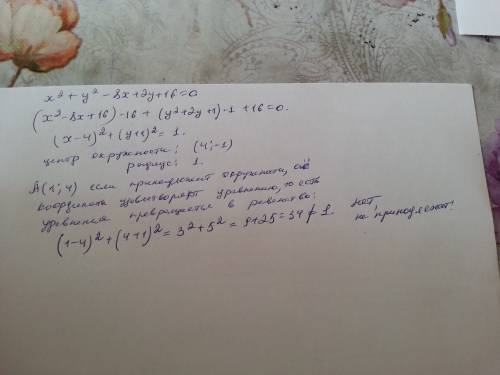 x² + y² - 8x + 2y + 16 = 0
(x² - 8x + 16) - 16 + (y² + 2y + 1) - 1 + 16 = 0.
(x - 4)² + (y + 1)² = 1.
центр окружности: (4; -1)
радиус: 1.
A(1; 4) если принадлежит окружности, её
координаты удовлетворяют уравнению, то есть
уравнение превращается в равенство:
(1-4)² + (4+1)² = 3² + 5² = 9+25 = 34 ≠ 1. Нет,
не принадлежит!